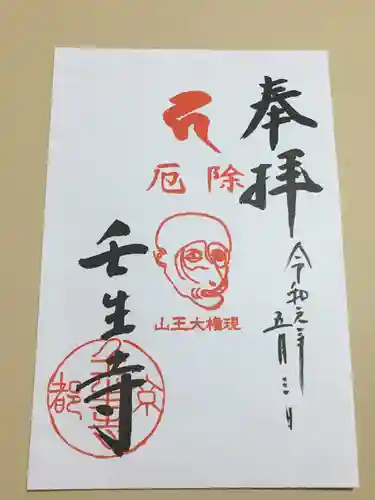 奉拝
令和元年
五月三日
厄除
山王大権現
壬生寺
京都
壬生寺